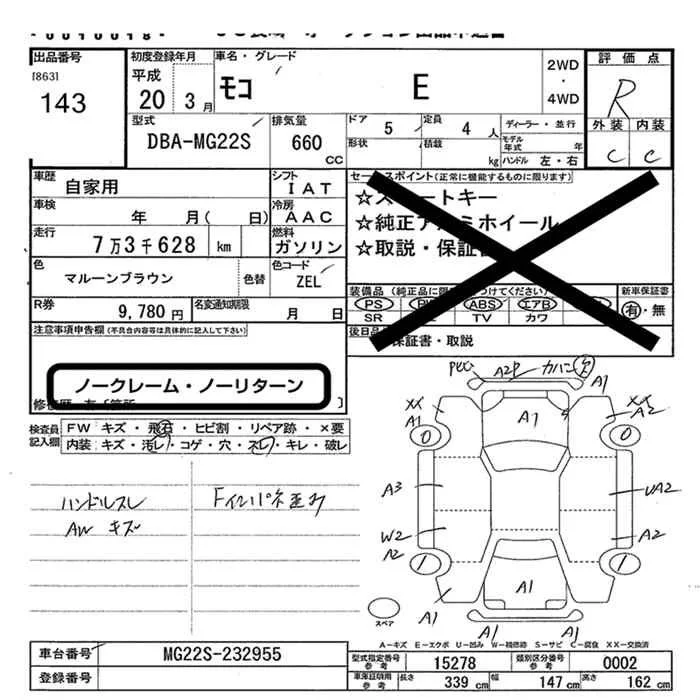 出品番号 初度登録年月 車名・グレード 2WD ・ 4WD 評価点
[863] 143 平成 20 3月 モコ E R
型式 排気量 ドア 5 定員 4人 ディーラー・並行 外装 内装
DBA-MG22S 660 CC 形状 積載 kg モデル年式 年 C C
ハンドル 左・右
車歴 自家用 シフト IAT セールスポイント(正常に機能するものに限ります)
車検 年 月( 日) 冷房 AAC ☆スマートキー
走行 7万3千628 km 燃料 ガソリン ☆純正アルミホイール
☆取説・保証書
色 マルーンブラウン 色替 色コード ZEL
装備品 新車保証書
PS ABS エアB 有・無
SR TV カワ
R券 9,780円 名変通知期限 月 日
後日品 保証書・取説
注意事項申告欄(不具合内容等は具体的に記入して下さい)
ノークレーム・ノーリターン
検査員記入欄 FW キズ・飛石・ヒビ割・リペア跡・×要
内装:キズ・汚レ・コゲ・穴・スレ・キレ・破レ
ハンドルスレ
AW キズ
A2P A1
XX A1 A1 XX A2
0 0
A3 UA2
W2 A2 A2
1 1
A1 A1
スペア A1 A1
A-キズ E-エクボ U-凹み W-補修跡 S-サビ C-腐食 XX-交換済
車台番号 MG22S-232955
登録番号
型式指定番号 参考 15278 類別区分番号 参考 0002
車庫証明用 参考 長さ 339 cm 幅 147 cm 高さ 162 cm